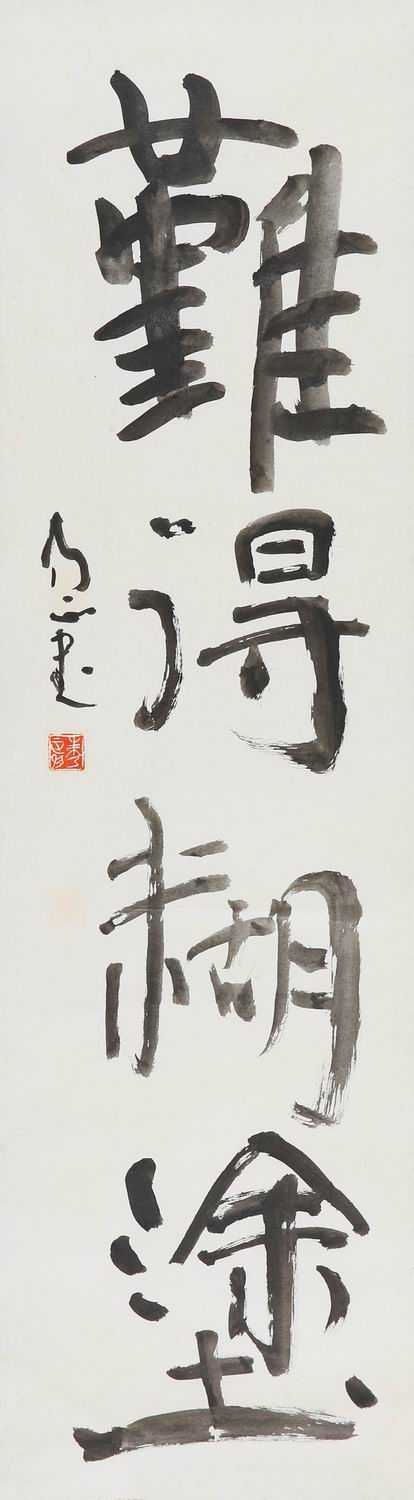 難得糊塗
乃正書